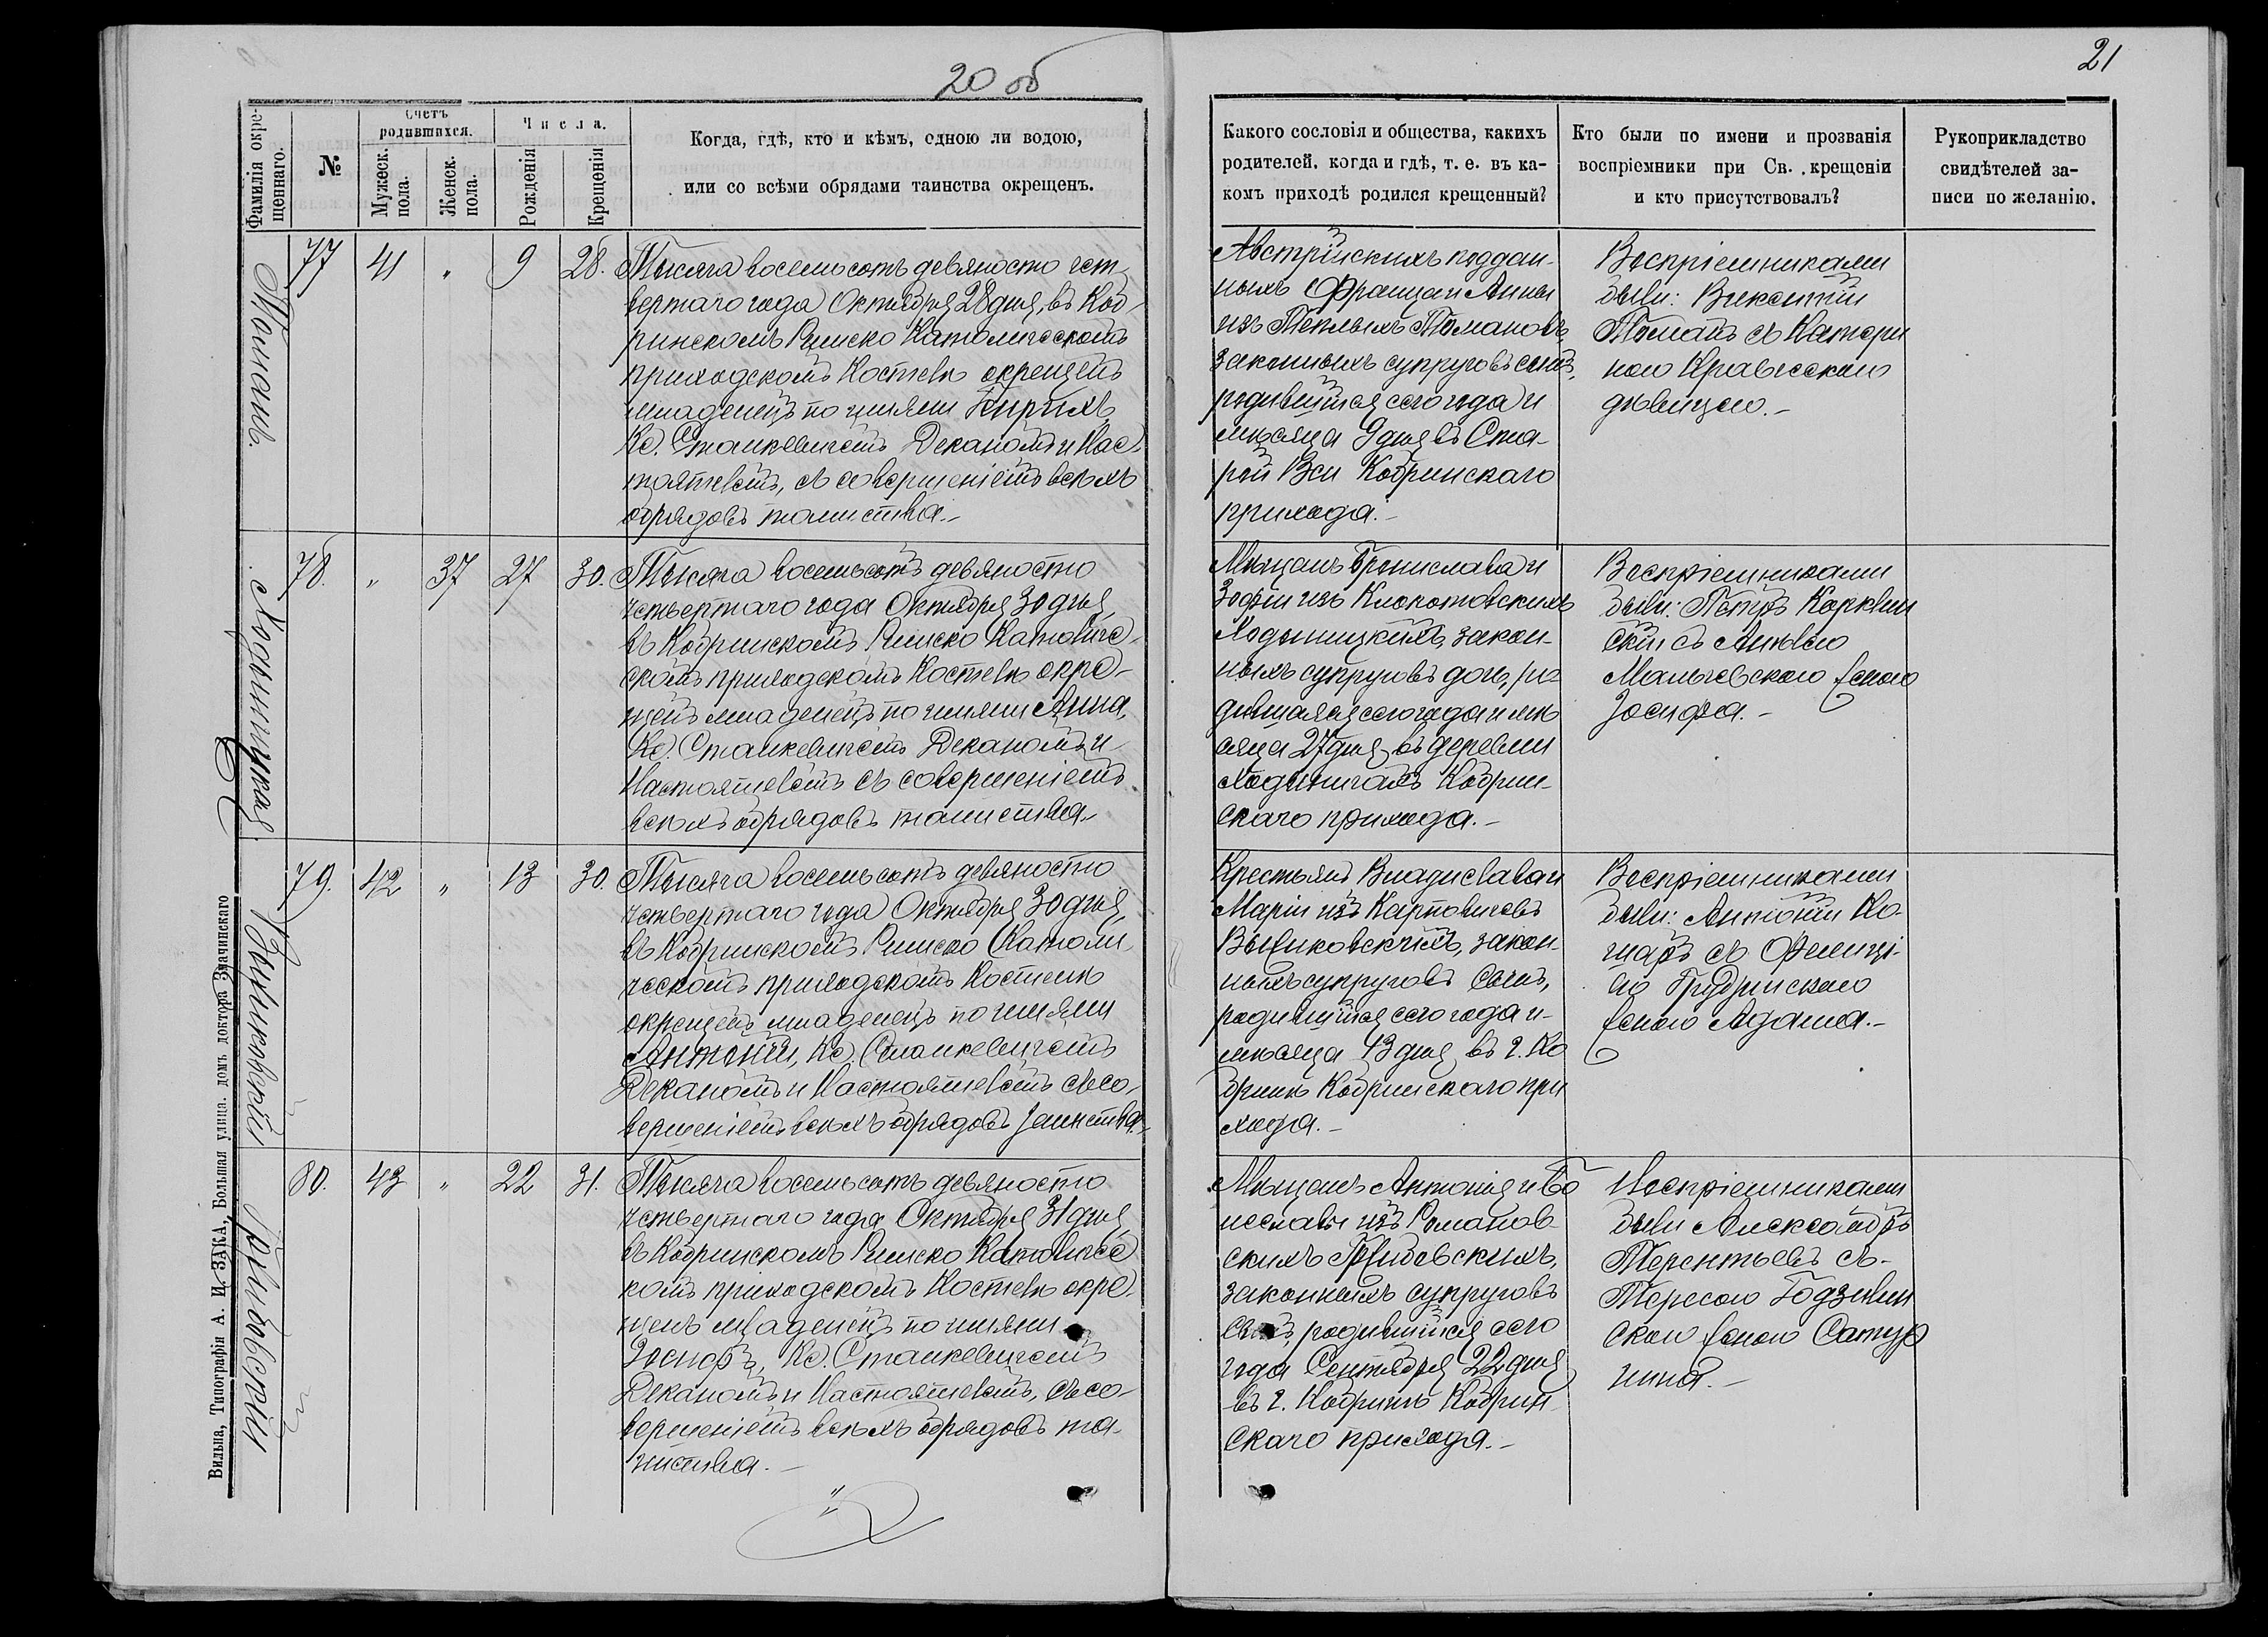 20 об
21
Фамилія окре-
щеннаго.
№
Счетъ
родившихся.
Мужеск.
пола.
Женск.
пола.
Числа.
Рожденія
Крещенія
Когда, гдѣ, кто и кѣмъ, одною ли водою,
или со всѣми обрядами таинства окрещенъ.
Какого сословія и общества, какихъ
родителей, когда и гдѣ, т. е. въ ка-
комъ приходѣ родился крещенный?
Кто были по имени и прозванія
воспріемники при Св. крещеніи
и кто присутствовалъ?
Рукоприкладство
свидѣтелей за-
писи по желанію.
Томанъ.
77 41 " 9 28.
Тысяча восемьсотъ девяносто чет-
вертаго года Октября 28 дня, въ Коб-
ринскомъ Римско Католическомъ
приходскомъ Костелѣ окрещенъ
младенецъ по имяни
Кс. Станкевичемъ Деканомъ и Нас-
тоятелемъ, съ совершеніемъ всѣхъ
обрядовъ таинства.-
Австрійскихъ поддан-
ныхъ Франца и Анны
изъ Томановъ,
законныхъ супруговъ сынъ,
родившійся сего года и
мѣсяца 9 дня въ Ста-
рой Вси Кобринскаго
прихода.-
Воспріемниками
были: Викентій
Томанъ съ Катери
ною
дѣвицею.-
Ходыницкая.
78. " 37 27 30.
Тысяча восемьсотъ девяносто
четвертаго года Октября 30 дня,
въ Кобринскомъ Римско Католиче-
скомъ приходскомъ Костелѣ окре-
щенъ младенецъ по имяни Анна,
Кс. Станкевичемъ Деканомъ и
Настоятелемъ съ совершеніемъ
всѣхъ обрядовъ таинства.-
Мѣщанъ Бронислава и
Зофіи изъ Клокотовскихъ
Ходыницкихъ, закон-
ныхъ супруговъ дочь, ро-
дившаяся сего года и мѣ
сяца 27 дня въ деревни
Ходыничахъ Кобрин-
скаго прихода.-
Воспріемниками
были: Петръ
скій съ Анною
Мальчевскою женою
Іосифа.-
Выликовскій
79. 42 " 13 30.
Тысяча восемьсотъ девяносто
четвертаго года Октября 30 дня,
въ Кобринскомъ Римско Католи
ческомъ приходскомъ Костелѣ
окрещенъ младенецъ по имяни
Антоній, Кс. Станкевичемъ
Деканомъ и Настоятелемъ съ со-
вершеніемъ всѣхъ обрядовъ таинства.-
Крестьянъ Владислава и
Маріи изъ Карповичевъ
Выликовскихъ, закон
ныхъ супруговъ сынъ,
родившійся сего года и
мѣсяца 13 дня въ г. Ко
бринѣ Кобринскаго при
хода.-
Воспріемниками
были: Антоній Ко-
съ Фелиці-
ею
женою Адама.-
80. 43 " 22 31.
Тысяча восемьсотъ девяносто
четвертаго года Октября 31 дня
въ Кобринскомъ Римско Католичес
комъ приходскомъ Костелѣ окре-
щенъ младенецъ по имяни
Іосифъ, Кс. Станкевичемъ
Деканомъ и Настоятелемъ, съ со-
вершеніемъ всѣхъ обрядовъ та-
инства.-
Мѣщанъ Антонія и Бо
леславы изъ Романов
скихъ
законныхъ супруговъ
сынъ, родившійся сего
года Сентября 22 дня
въ г. Кобринѣ Кобрин
скаго прихода.-
Воспріемниками
были Александръ
Терентьевъ съ
Тересою
скою женою Сатур
нина.-
Вильна, Типографія А. И. ЗАКА, Большая улица. домъ доктора Значинскаго